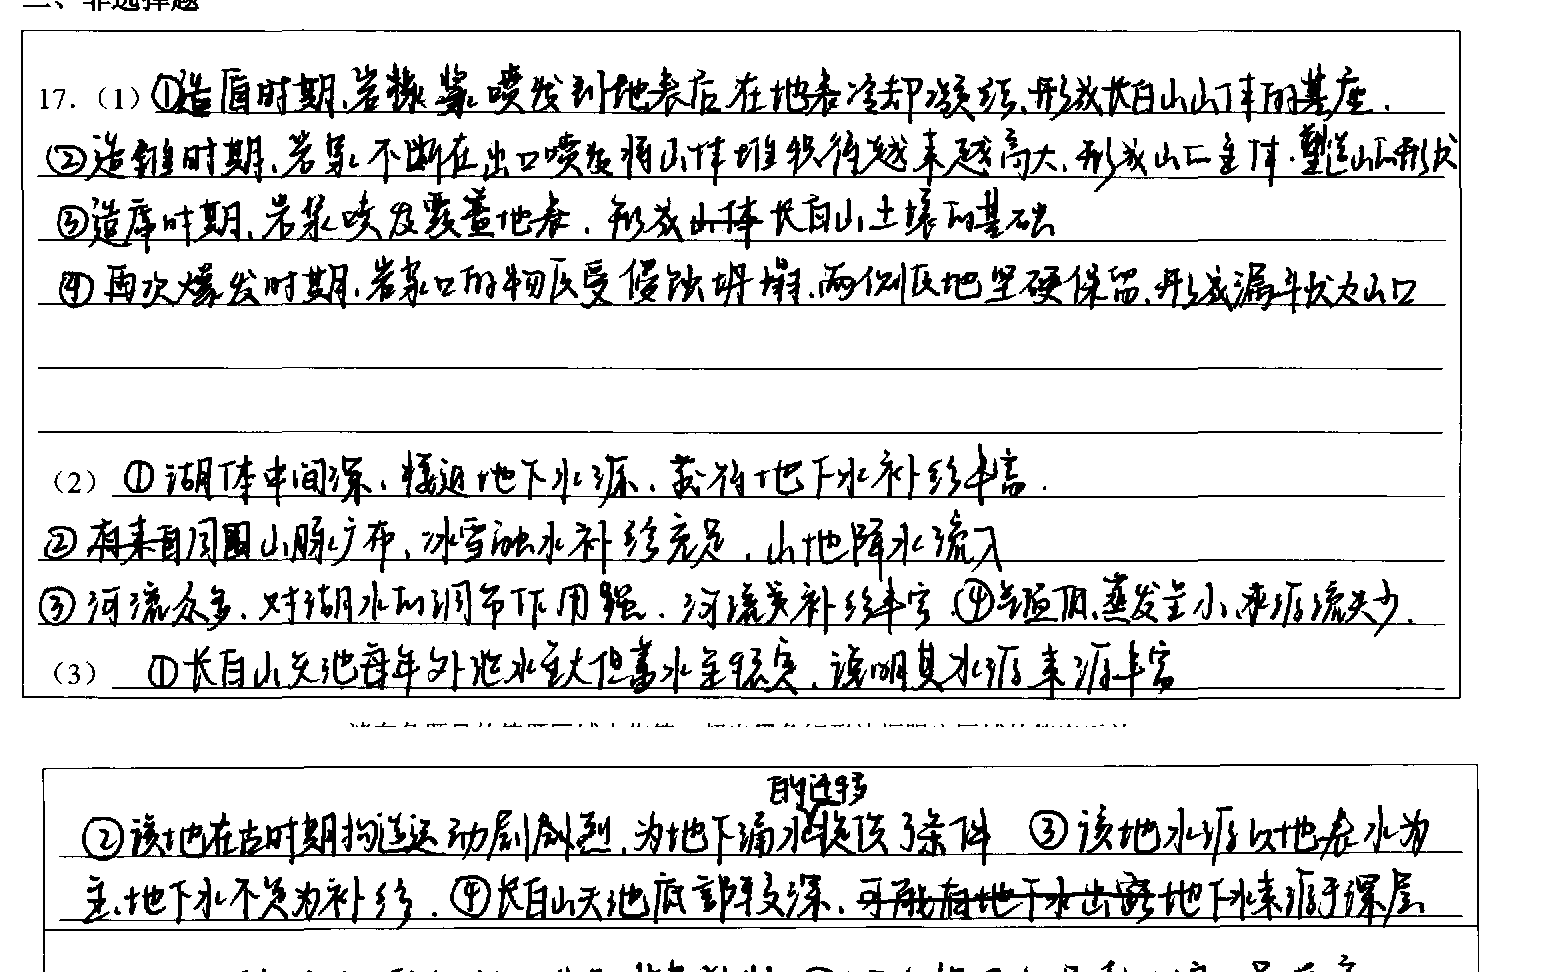 二、非选择题
17.（1）①造盾时期，岩浆喷发到地表后在地表冷却凝结，形成长白山山体的基座.
②造锥时期，岩浆不断在出口喷发将山体堆积得越来越高大，形成山口主体.塑造山口形状
③造席时期，岩浆喷发覆盖地表，形成长白山土壤的基础
④再次爆发时期，岩浆口的物质受侵蚀坍塌，两侧质地坚硬保留，形成漏斗状火山口
（2）①湖体中间深，接近地下水源，获得地下水补给丰富.
②周围山脉广布，冰雪融水补给充足，山地降水流入
③河流众多，对湖水的调节作用强，河流类补给丰富 ④气温低，蒸发量小，水源流失少.
（3）①长白山天池每年外泄水量大但蓄水量稳定，说明其水源来源丰富
的迁移
②该地在古时期构造运动剧烈，为地下涌水提供了条件 ③该地水源以地表水为
主，地下水不足为补给. ④长白山天池底部较深，地下水来源于深层